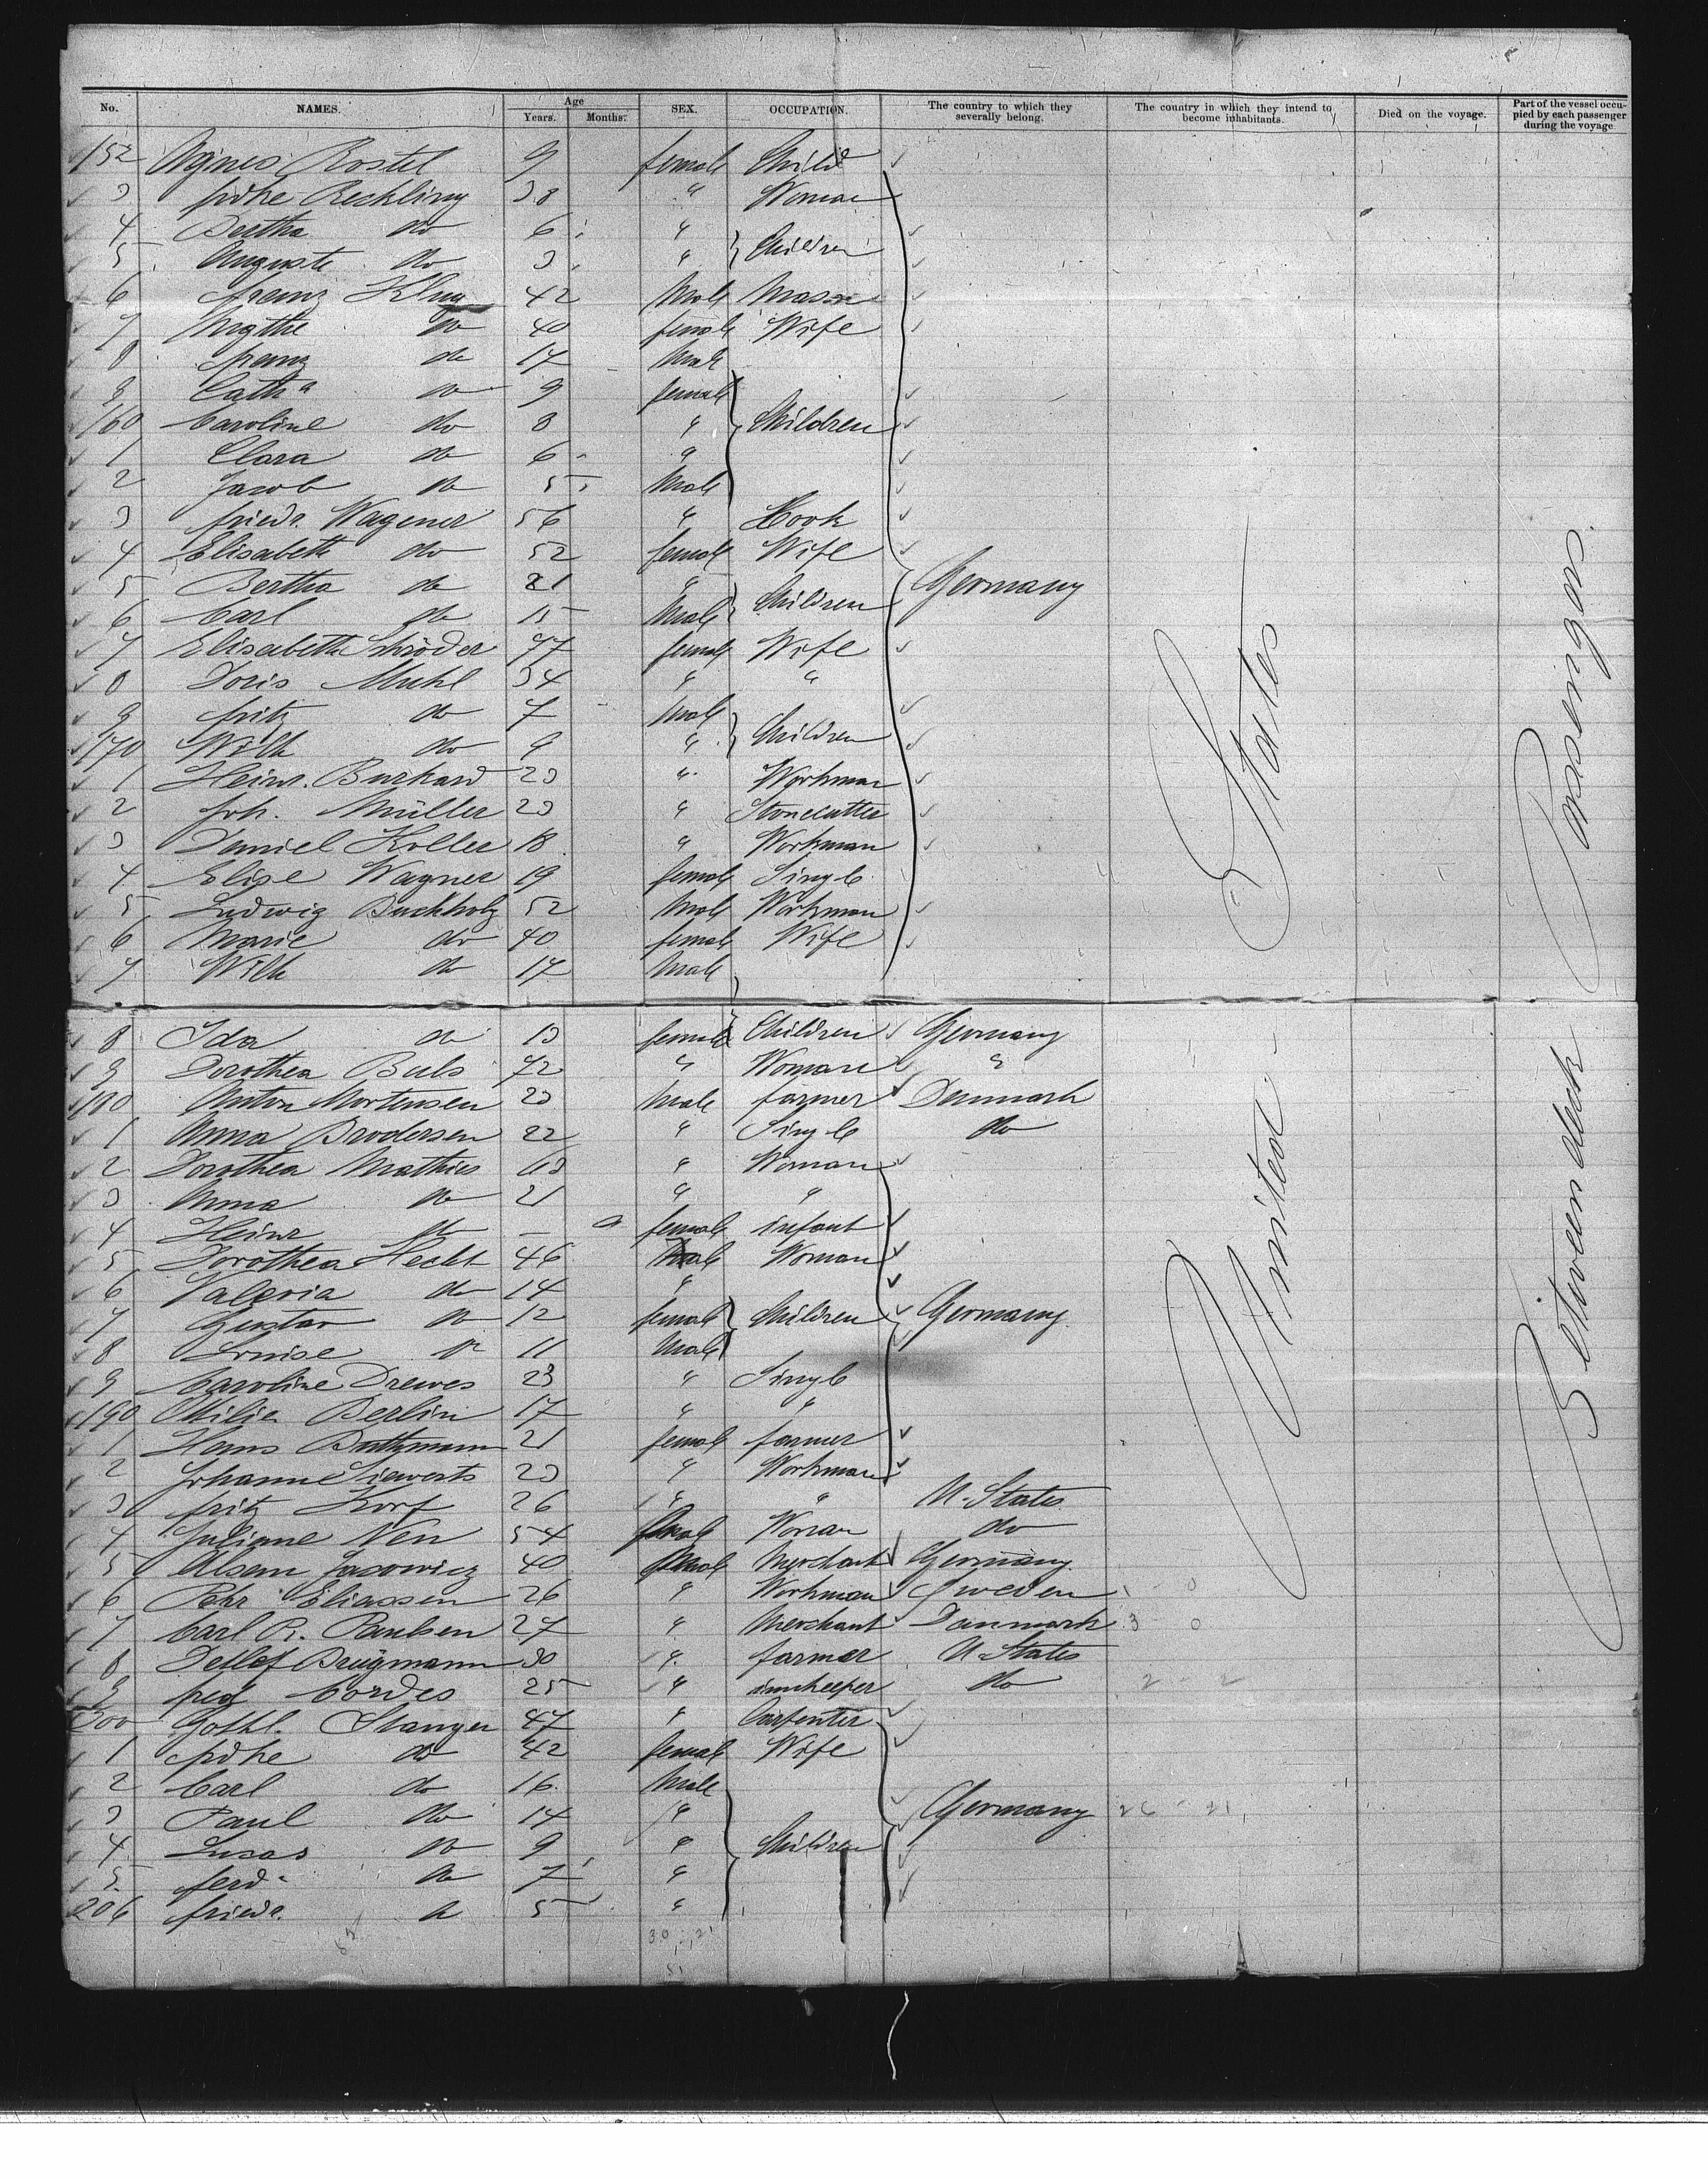 No. NAMES. Age Years. Months. SEX. OCCUPATION. The country to which they severally belong. The country in which they intend to become inhabitants. Died on the voyage. Part of the vessel occupied by each passenger during the voyage
152 Agnes Rostel 9 female Child
3 fridke Reckling 38 " Woman
4 Bertha do 6 "
5 Auguste do 3 " Children
6 franz Klug 42 Male Mason
7 Agthe do 40 female Wife
8 franz do 17 Male
9 Cath a do 9 female
160 Caroline do 8 " Children
1 Clara do 6 "
2 Jacob do 5 Male
3 friedr. Wagener 56 " Cook
4 Elisabeth do 52 female Wife
5 Bertha do 21 " Children Germany
6 Carl do 15 Male
7 Elisabeth Schröder 47 female Wife
8 Doris Muhl 34 " "
9 fritz do 7 Male Children
170 Wilh do 9 "
1 Heinr. Burkard 23 " Workman
2 Joh. Müller 23 " Stonecutter
3 Daniel Koller 18 " Workman
4 Elise Wagner 19 female Single
5 Ludwig Buckholz 52 Male Workman
6 Marie do 40 female Wife
7 Wilh do 17 Male
8 Ida do 13 female Children Germany
9 Dorothea Buls 72 " Woman "
180 Anton Mortensen 23 Male farmer Denmark
1 Anna Brodersen 22 " Single do
2 Dorothea Mathies 63 " Woman
3 Anna do 21 " "
4 Heinr do — 9 female infant
5 Dorothea Hecht 46 Male Woman
6 Valeria do 14 "
7 Gustav do 12 female Children Germany.
8 Louise do 11 Male
9 Caroline Drewes 23 " Single
190 Ottilie Berlin 17 " "
1 Hans Buthmann 21 female farmer
2 Johanne Sieverts 23 " Workman
3 fritz Korf 26 " " U. States
4 Juliane Neu 54 Woman do
5 Jacowicz 40 Merchant Germany
6 Pehr Eliassen 26 " Workman Sweden
7 Carl R. Paulsen 27 " Merchant Danmark 3 0
8 Detlef Brügmann 30 " farmer U. States
9 Cordes 25 " innkeeper do 2 - 2
200 Gothl. Stanger 47 " Carpenter
1 fridke do 42 female Wife
2 Carl do 16. Male
3 Paul do 14 " Germany 26 - 21
4 Lucas do 9 " Children
5 ferd. do 7 "
206 friedr. do 5 "
30 21
51
United States
Between deck Passengers.